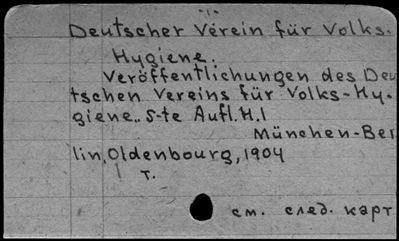 Deutscher Verein für Volks-
Hygiene.
Veröffentlichungen des Deu
tschen Vereins für Volks-Hy-
giene.. 5-te Aufl. H.1
München-Ber
lin, Oldenbourg, 1904
T.
см. след. карт